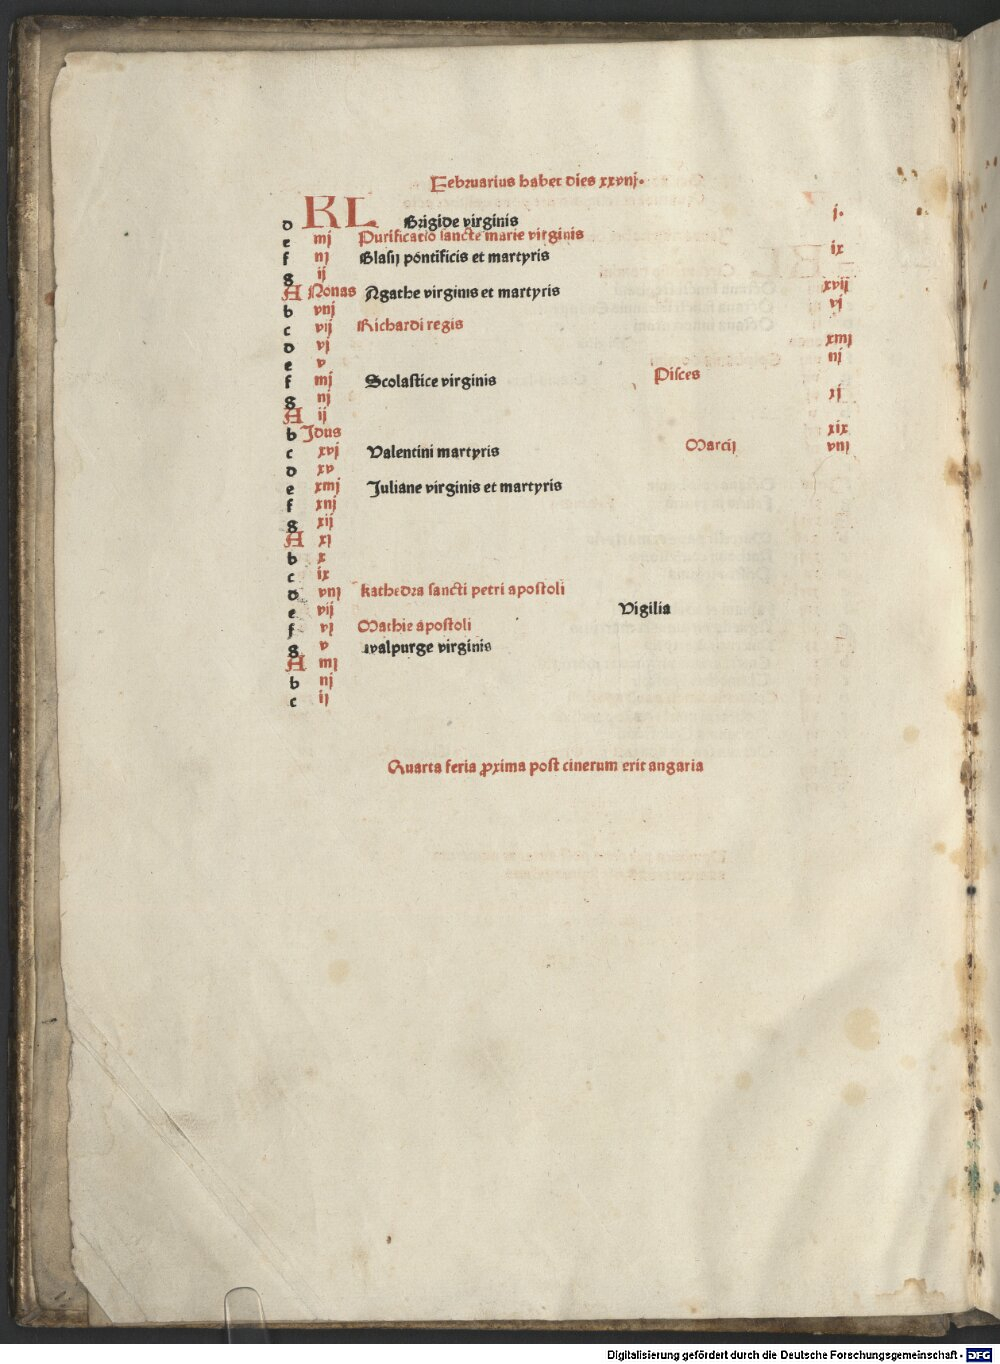 Februarius habet dies xxvnj.
d KL Brigide virginis j.
e mj Purificatio sancte marie virginis
f nj Blasij pontificis et martyris ix
g ij
A Nonas Agathe virginis et martyris xvij
b vnj vj
c vij Richardi regis
d vj xmj
e v nj
f mj Scolastice virginis Pisces
g nj xj
A ij
b Jdus xix
c xvj Valentini martyris Marcij vnj
d xv
e xmj Juliane virginis et martyris
f xnj
g xij
A xj
b x
c ix
d vnj kathedra sancti petri apostoli
e vij Vigilia
f vj Mathie apostoli
g v walpurge virginis
A mj
b nj
c ij
Quarta feria ꝓxima post cinerum erit angaria
Digitalisierung gefördert durch die Deutsche Forschungsgemeinschaft - DFG